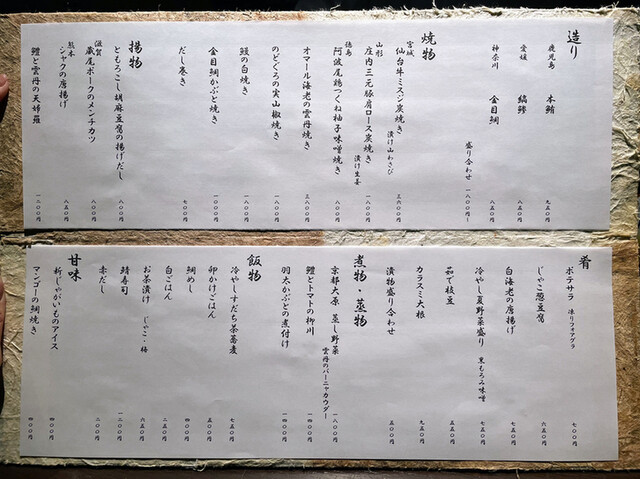 造り
鹿児島 本鮪 九五〇円
愛媛 縞鯵 八五〇円
神奈川 金目鯛 八五〇円
盛り合わせ 一八〇〇円〜
焼物
宮城 仙台牛ミスジ炭焼き 漬け山わさび 三六〇〇円
山形 庄内三元豚肩ロース炭焼き 漬け生姜 一八〇〇円
徳島 阿波尾鶏つくね柚子味噌焼き 八〇〇円
オマール海老の雲丹焼き 三八〇〇円
のどぐろの実山椒焼き 一八〇〇円
鰻の白焼き 一八〇〇円
金目鯛かぶと焼き 一〇〇〇円
だし巻き 七〇〇円
揚物
ともろこし胡麻豆腐の揚げだし 八〇〇円
滋賀 蔵尾ポークのメンチカツ 八〇〇円
熊本 シャクの唐揚げ 八五〇円
鱧と雲丹の天婦羅 一二〇〇円
肴
ポテサラ 凍りフォアグラ 七〇〇円
じゃこ葱豆腐 六五〇円
白海老の唐揚げ 七五〇円
冷やし夏野菜盛り 黒もろみ味噌 七五〇円
茹で枝豆 五五〇円
カラスミ大根 九五〇円
漬物盛り合わせ 五〇〇円
煮物・蒸物
京都大原 蒸し野菜 雲丹のバーニャカウダー 一八〇〇円
鱧とトマトの柳川 一四〇〇円
羽太かぶとの煮付け 一四〇〇円
飯物
冷やしすだち茶蕎麦 七五〇円
卵かけごはん 五五〇円
鯛めし 四〇〇円
白ごはん 二五〇円
お茶漬け じゃこ・梅 六五〇円
鯖寿司 一二〇〇円
赤だし 二〇〇円
甘味
新じゃがいものアイス 四〇〇円
マンゴーの鯛焼き 四〇〇円